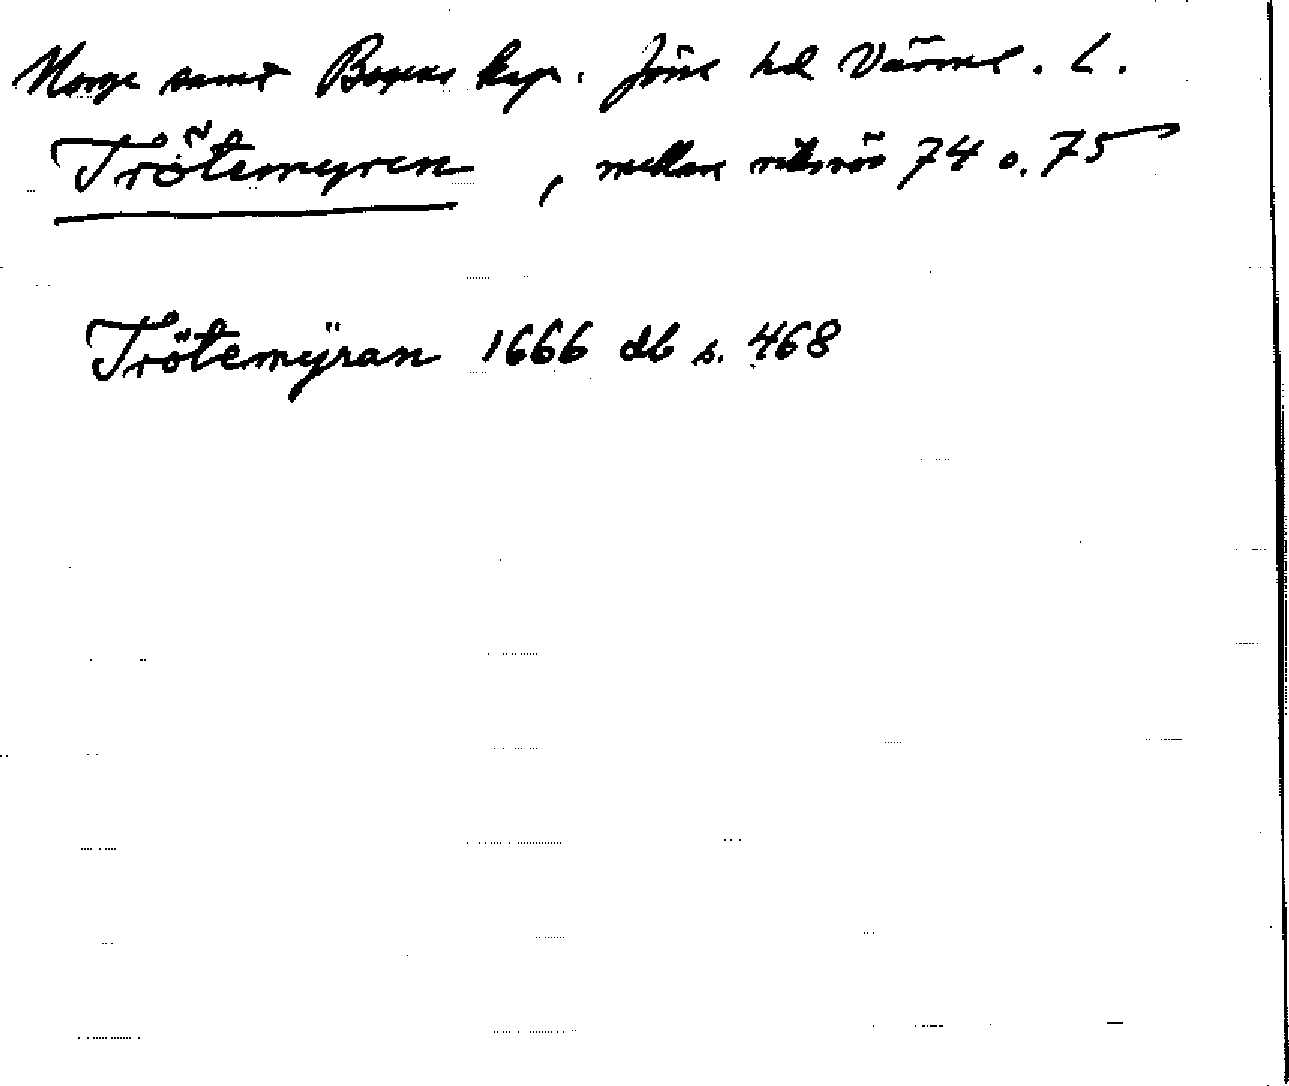 Norge samt Bogens kap. Jösse hd Värml. L.
Trötemyren, mellan riksrös 74 o. 75
Trötemÿran 1666 db s. 468